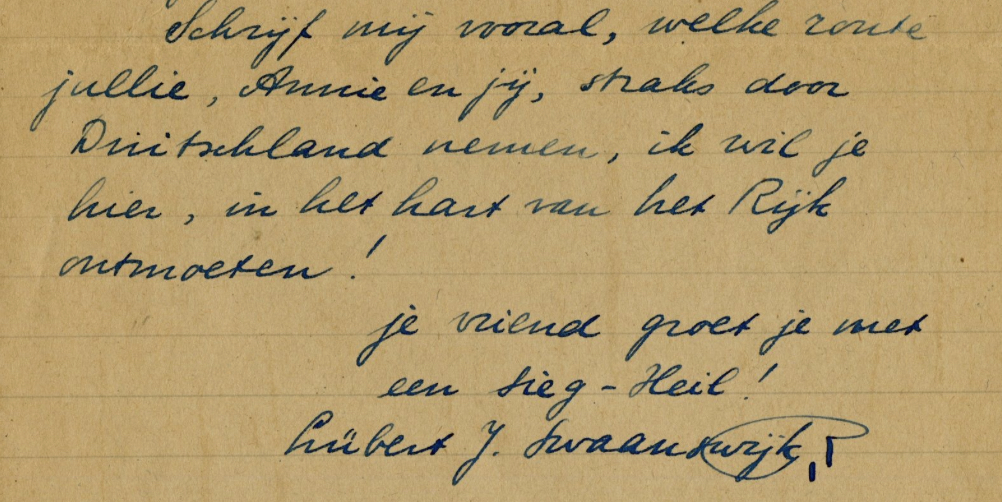 Schrijf mij vooral, welke route
jullie, Annie en jij, straks door
Duitschland nemen, ik wil je
hier, in het hart van het Rijk
ontmoeten!
je vriend groet je met
een Sieg-Heil!
Lübert J. Swaanswijk,